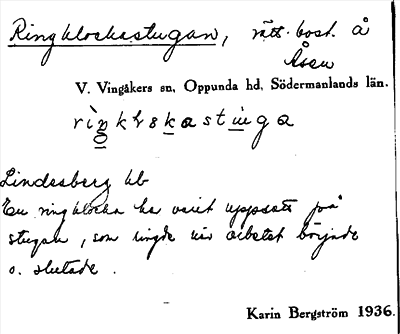 Ringklockstugan, rätt. bost. å
Åsen
V. Vingåkers sn, Oppunda hd, Södermanlands län.
Lindesberg hb
En ringklocka har varit uppsatt på
stugan, som ringde när arbetet började
o. slutade.
Karin Bergström 1936.